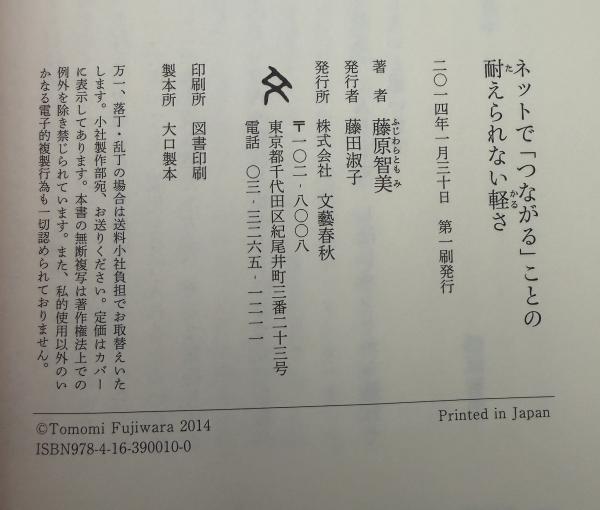 ネットで「つながる」ことの
耐えられない軽さ
た
かる
二〇一四年一月三十日　第一刷発行
著　者　藤原智美
ふじわらともみ
発行者　藤田淑子
発行所　株式会社　文藝春秋
〒一〇二-八〇〇八
東京都千代田区紀尾井町三番二十三号
電話　〇三-三二六五-一二一一
印刷所　図書印刷
製本所　大口製本
万一、落丁・乱丁の場合は送料小社負担でお取替えいた
します。小社製作部宛、お送りください。定価はカバー
に表示してあります。本書の無断複写は著作権法上での
例外を除き禁じられています。また、私的使用以外のい
かなる電子的複製行為も一切認められておりません。
©Tomomi Fujiwara 2014
Printed in Japan
ISBN978-4-16-390010-0